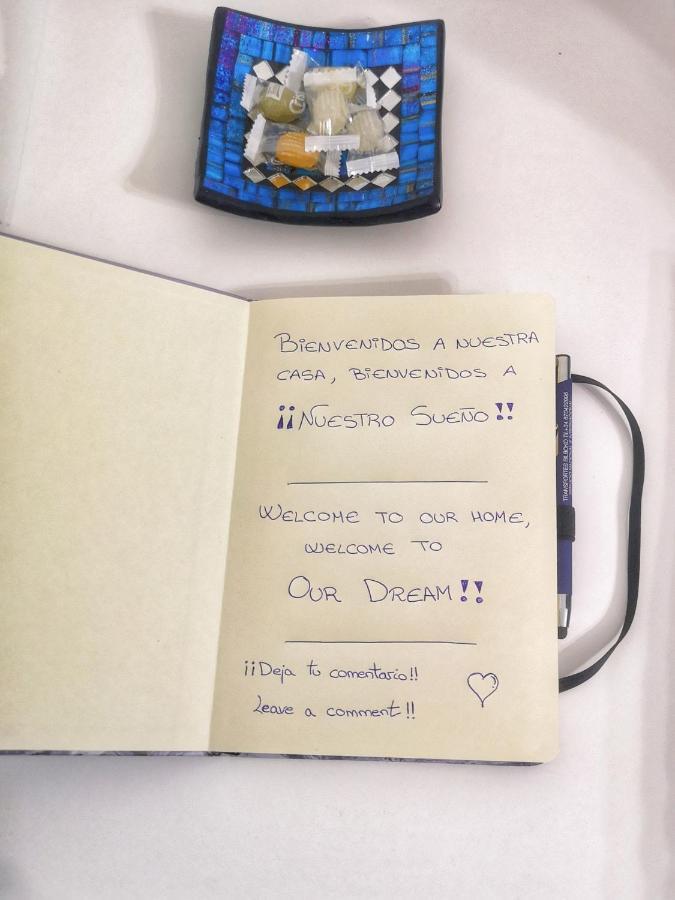 Bienvenidos a nuestra
casa, bienvenidos a
¡¡Nuestro Sueño!!
Welcome to our home,
welcome to
Our Dream!!
¡¡Deja tu comentario!!
Leave a comment!!